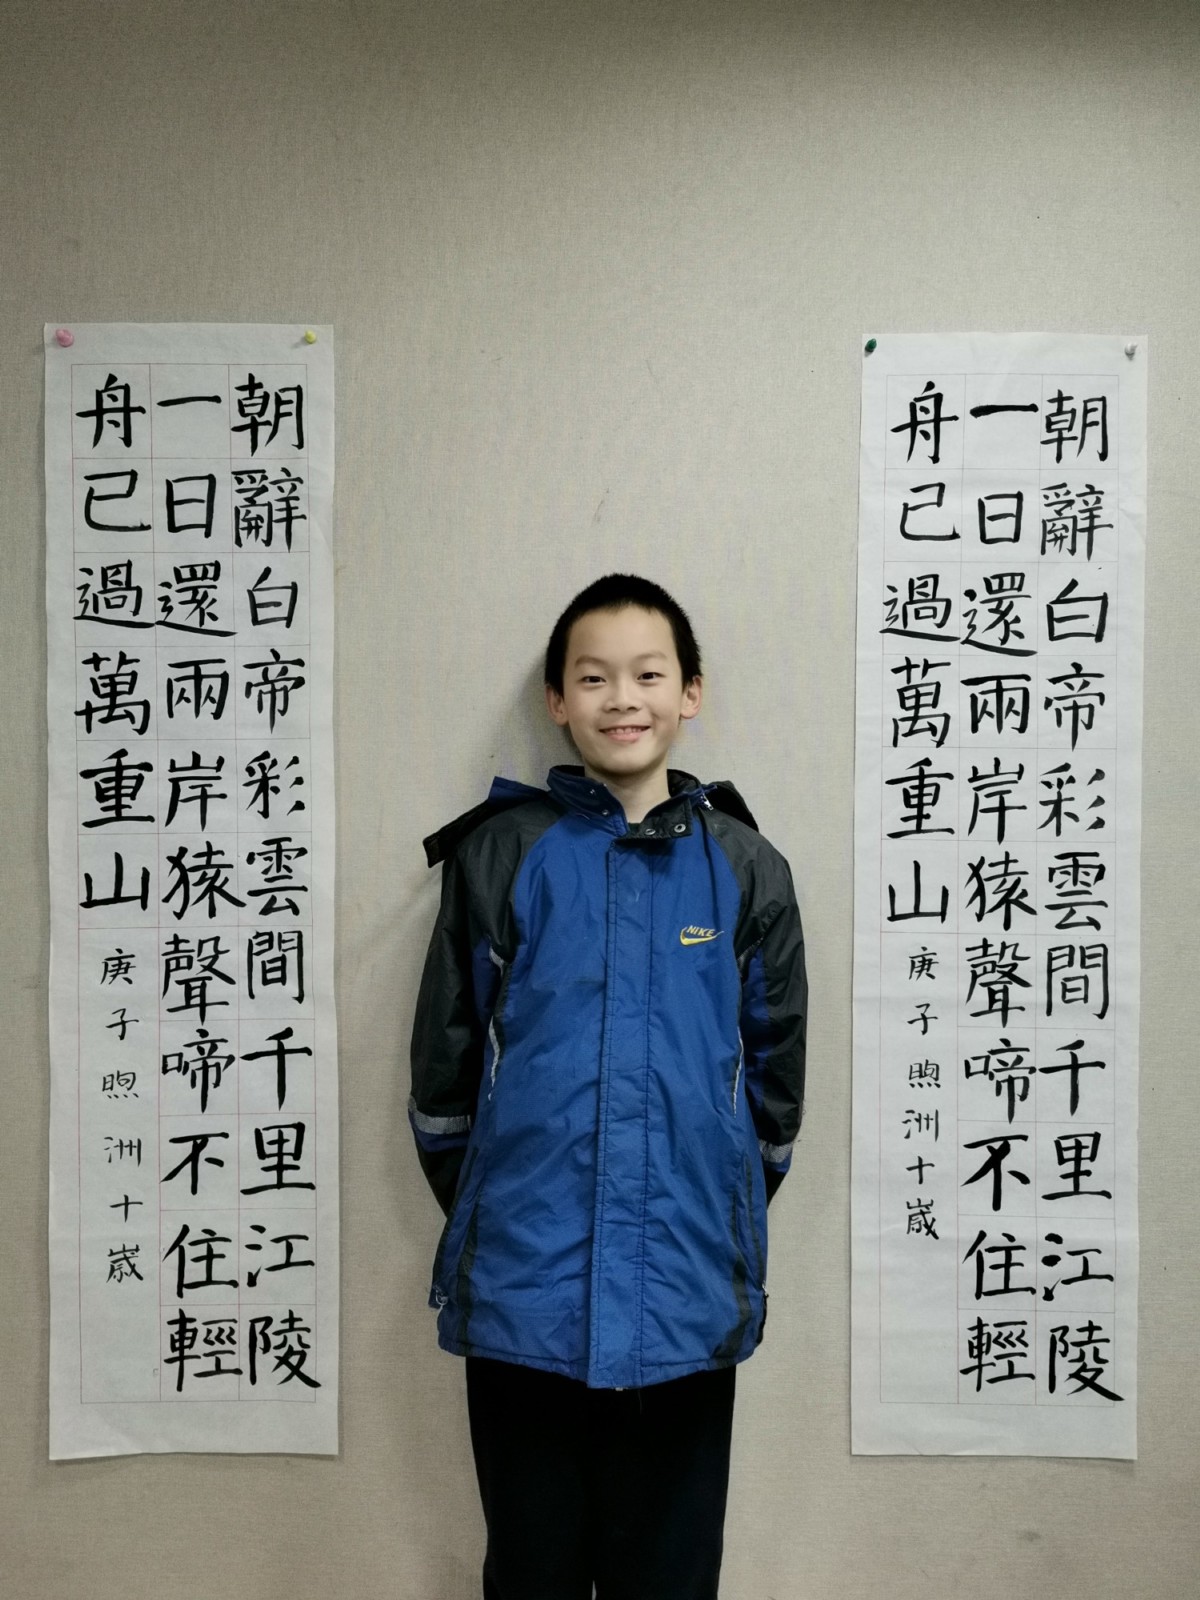 朝辭白帝彩雲間千里江陵
一日還兩岸猿聲啼不住輕
舟已過萬重山 庚子煦洲十歲
NIKE
朝辭白帝彩雲間千里江陵
一日還兩岸猿聲啼不住輕
舟已過萬重山 庚子煦洲十歲